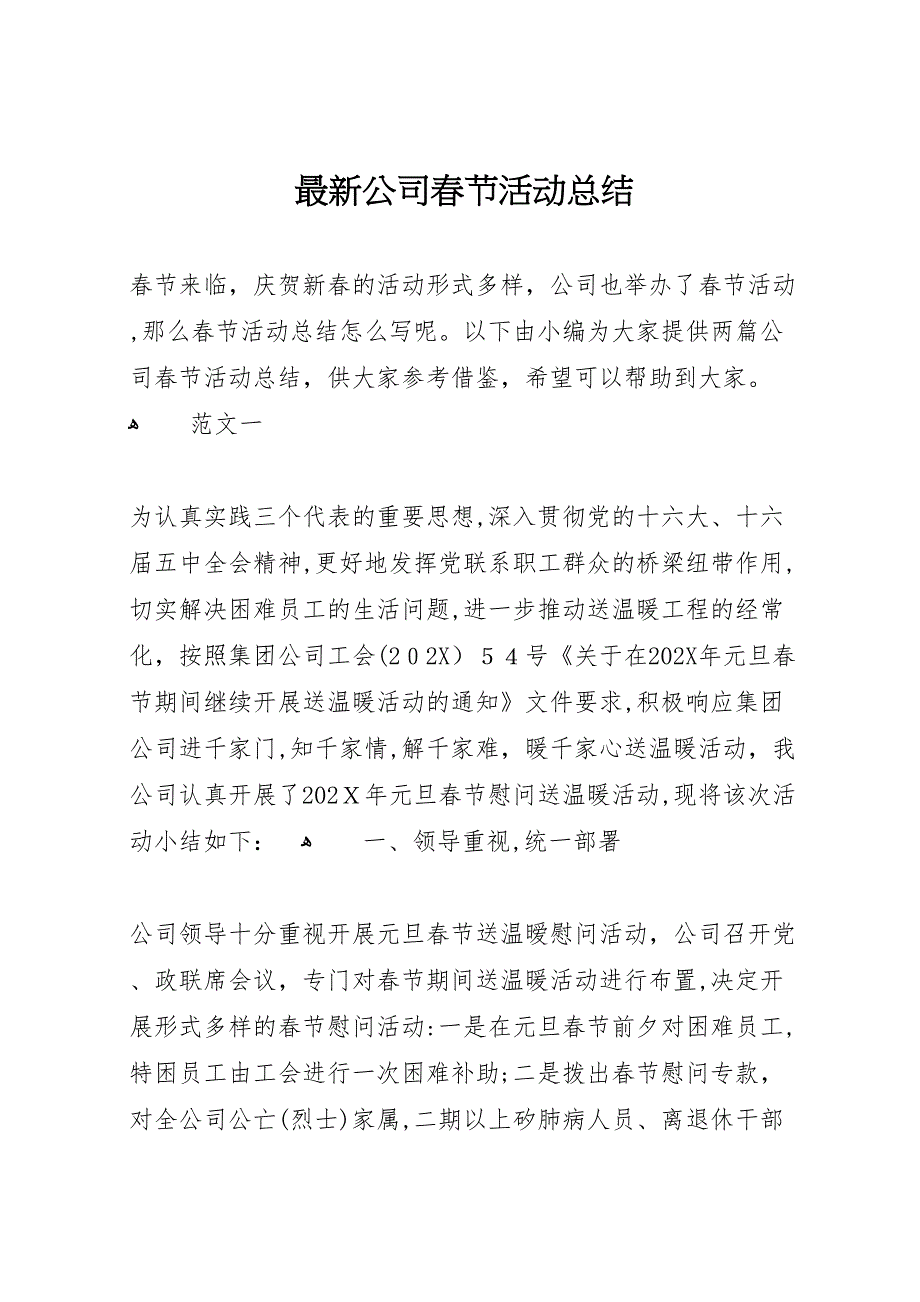 最新公司春节活动总结
春节来临，庆贺新春的活动形式多样，公司也举办了春节活动
,那么春节活动总结怎么写呢。以下由小编为大家提供两篇公
司春节活动总结，供大家参考借鉴，希望可以帮助到大家。
ﻫ 范文一
为认真实践三个代表的重要思想,深入贯彻党的十六大、十六
届五中全会精神,更好地发挥党联系职工群众的桥梁纽带作用,
切实解决困难员工的生活问题,进一步推动送温暖工程的经常
化，按照集团公司工会(２０２X）５４号《关于在202X年元旦春
节期间继续开展送温暖活动的通知》文件要求,积极响应集团
公司进千家门,知千家情,解千家难，暖千家心送温暖活动，我
公司认真开展了202Ｘ年元旦春节慰问送温暖活动,现将该次活
动小结如下： ﻫ 一、领导重视,统一部署
公司领导十分重视开展元旦春节送温暖慰问活动，公司召开党
、政联席会议，专门对春节期间送温暖活动进行布置,决定开
展形式多样的春节慰问活动:一是在元旦春节前夕对困难员工,
特困员工由工会进行一次困难补助;二是拨出春节慰问专款，
对全公司公亡(烈士)家属,二期以上矽肺病人员、离退休干部